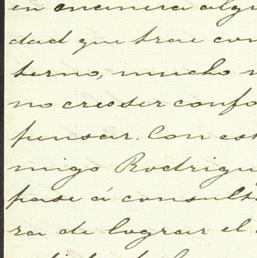 en manera algu
dad que trae con
terno, mucho
no creo ser confo
pensar. Con est
migo Rodrigu
pase á consult
ra de lograr el